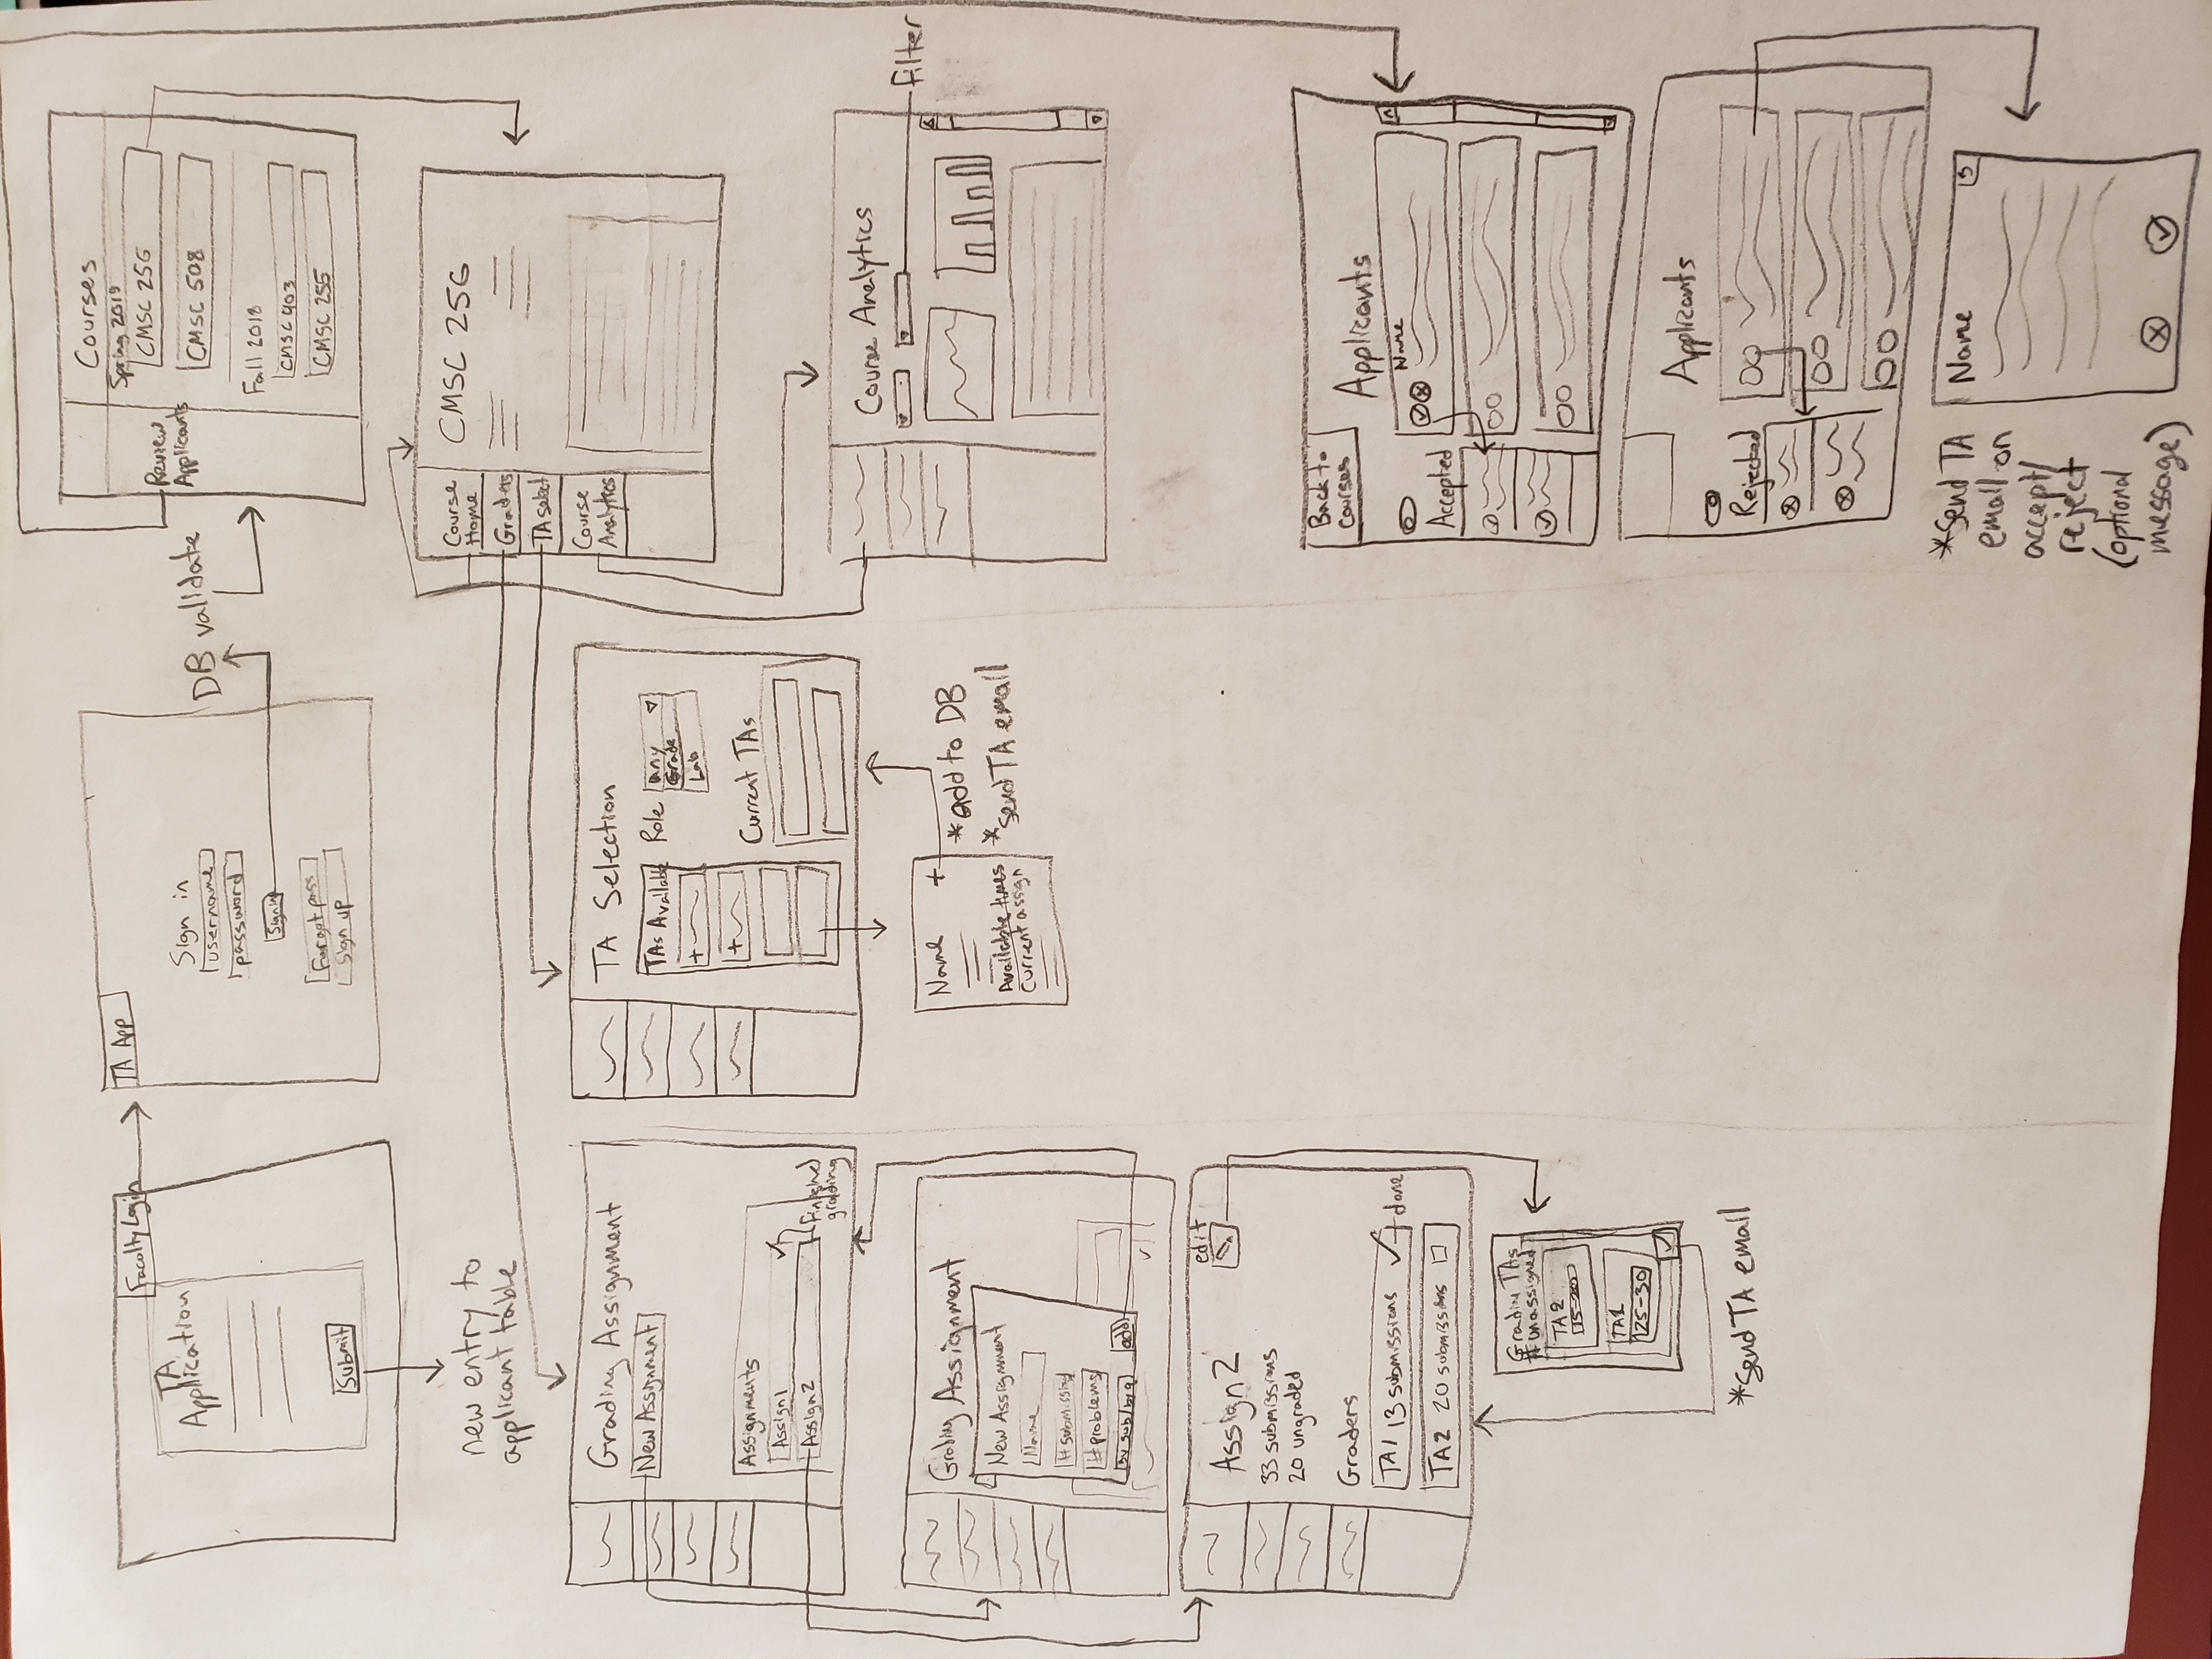 Faculty Login
TA
Application
Submit
new entry to
applicant table
TA App
Sign in
username
password
Sign in
Forgot pass
Sign up
DB validate
Courses
Spring 2019
CMSC 256
CMSC 508
Review
Applicants
Fall 2018
CMSC 403
CMSC 255
Course
Home
Graders
TA select
Course
Analytics
CMSC 256
Grading Assignment
New Assignment
Assignments
Assign1
Assign2
finished
grading
TA Selection
TAs Available
+
+
Role
any
Grade
Lab
Current TAs
Name +
Available times
Current assign
*add to DB
*send TA email
Course Analytics
filter
Grading Assignment
New Assignment
Name
#submissing
#problems
By sub/by q
add
Assign 2
edit
33 submissions
20 ungraded
Graders
TA1 13 submissions ✓
done
TA2 20 submissions
Grading TAs
#unassigned
TA2
15-20
TA1
25-30
✓
*Send TA email
Back to
courses
Applicants
Name
Accepted
Applicants
Rejected
*Send TA
email on
accept/
reject
(optional
message)
Name